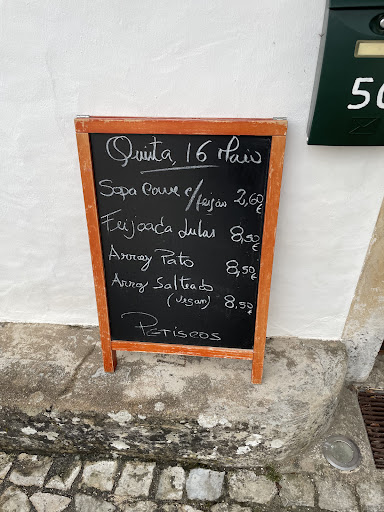 Quinta, 16 Maio
Sopa Couve c/ feijão 2,60€
Feijoada Lulas 8,50€
Arroz Pato 8,50€
Arroz Salteado 8,50€
(vegan)
Petiscos
50